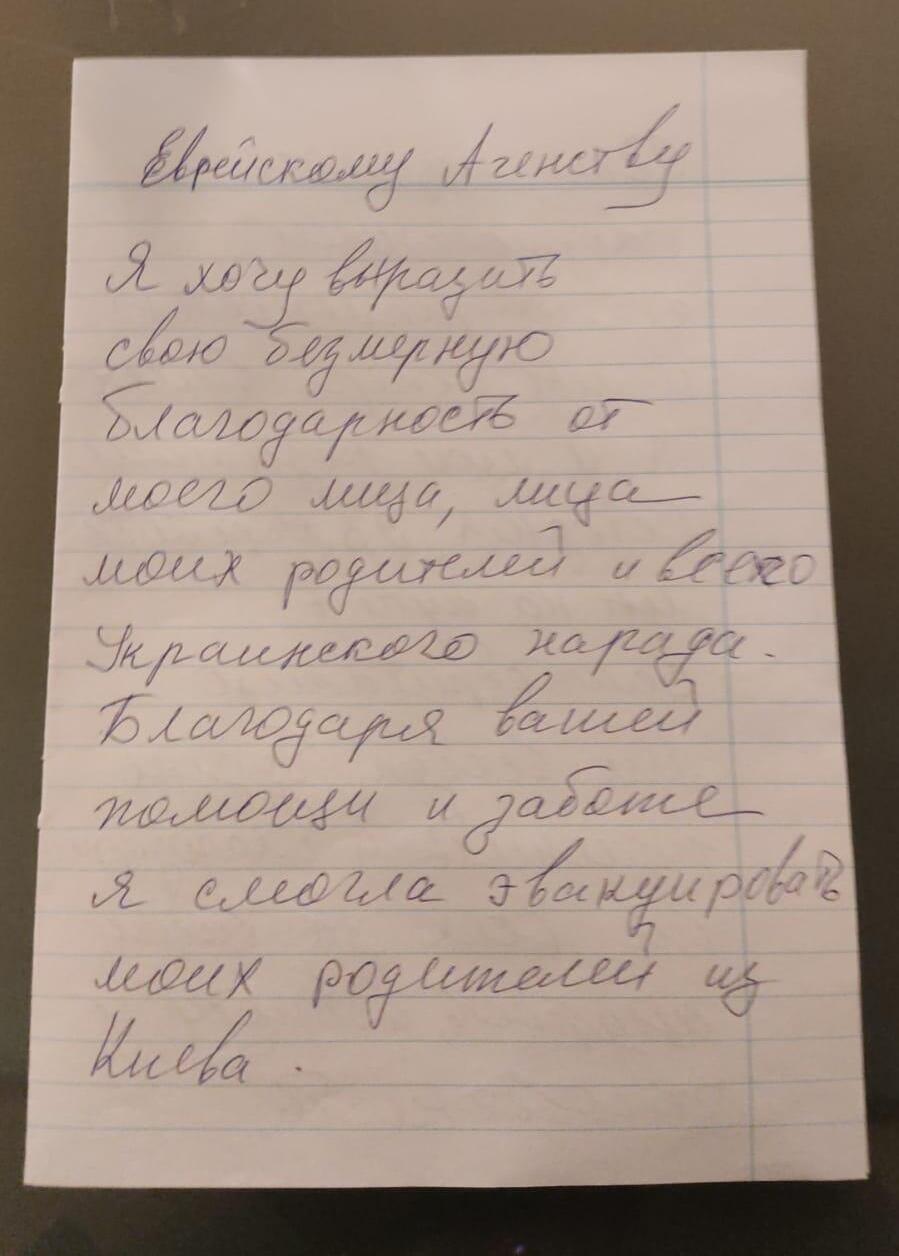 Еврейскому Агенству
Я хочу выразить
свою безмерную
благодарность от
моего лица, лица
моих родителей и всего
Украинского народа.
Благодаря вашей
помощи и заботе
я смогла эвакуировать
моих родителей из
Киева.